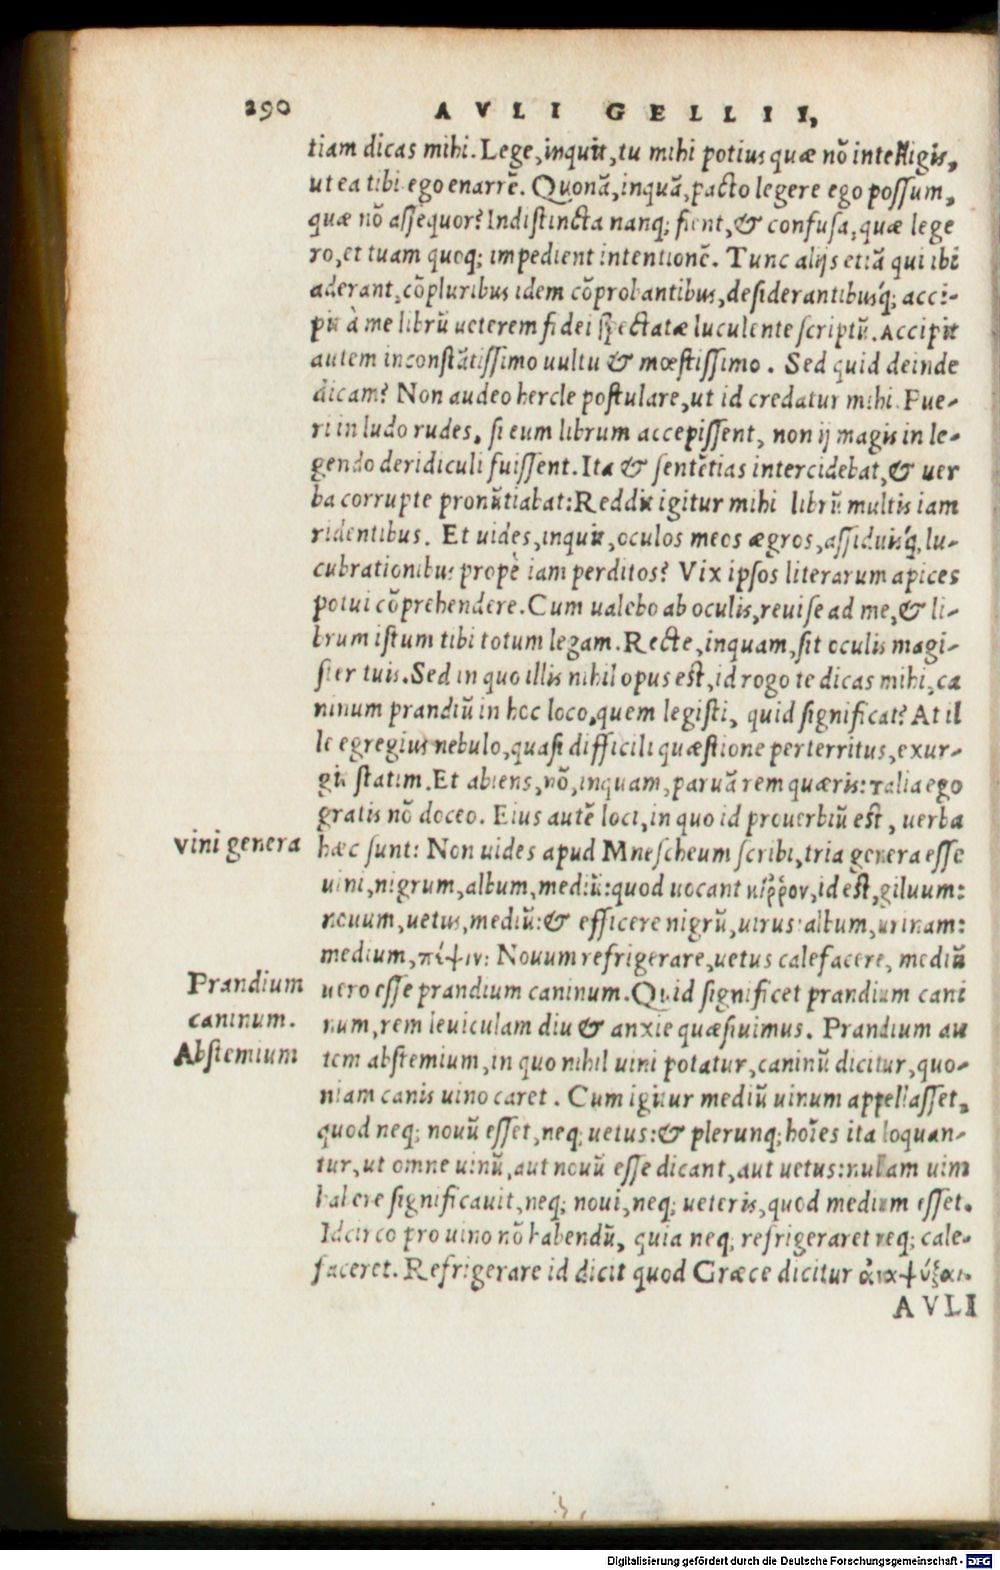 290 AVLI GELLII,
tiam dicas mihi. Lege, inquit, tu mihi potius quæ nõ intelligis,
ut ea tibi ego enarrẽ. Quonã, inquã, pacto legere ego possum,
quæ nõ assequor? Indistincta nanq; fient, & confusa, quæ lege
ro, et tuam quoq; impedient intentionẽ. Tunc alijs etiã qui ibi
aderant, cõpluribus idem cõprobantibus, desiderantibusq́; acci-
pit à me librũ ueterem fidei spectatæ luculente scriptũ. Accipit
autem inconstãtissimo uultu & mœstissimo. Sed quid deinde
dicam? Non audeo hercle postulare, ut id credatur mihi. Pue-
ri in ludo rudes, si eum librum accepissent, non ij magis in le-
gendo deridiculi fuissent. Ita & sentẽtias intercidebat, & uer
ba corrupte pronũtiabat: Reddit igitur mihi librũ multis iam
ridentibus. Et uides, inquit, oculos meos ægros, assiduisq́, lu-
cubrationibus propè iam perditos? Vix ipsos literarum apices
potui cõprehendere. Cum ualebo ab oculis, reuise ad me, & li-
brum istum tibi totum legam. Recte, inquam, sit oculis magi-
ster tuis. Sed in quo illis nihil opus est, id rogo te dicas mihi, ca
ninum prandiũ in hoc loco, quem legisti, quid significat? At il
le egregius nebulo, quasi difficili quæstione perterritus, exur-
git statim. Et abiens, nõ, inquam, paruã rem quæris: talia ego
gratis nõ doceo. Eius autẽ loci, in quo id prouerbiũ est, uerba
vini genera
hæc sunt: Non uides apud Mnescheum scribi, tria genera esse
uini, nigrum, album, mediũ: quod uocant κίρρον, id est, giluum:
nouum, uetus, mediũ: & efficere nigrũ, uirus: album, urinam:
medium, πέψιν: Nouum refrigerare, uetus calefacere, mediũ
Prandium
uero esse prandium caninum. Quid significet prandium cani
caninum.
num, rem leuiculam diu & anxie quæsiuimus. Prandium au
Abstemium
tem abstemium, in quo nihil uini potatur, caninũ dicitur, quo-
niam canis uino caret. Cum igitur mediũ uinum appellasset,
quod neq; nouũ esset, neq; uetus: & plerunq; hoĩes ita loquan-
tur, ut omne uinũ, aut nouũ esse dicant, aut uetus: nullam uim
habere significauit, neq; noui, neq; ueteris, quod medium esset.
Idcirco pro uino nõ habendũ, quia neq; refrigeraret neq; cale-
faceret. Refrigerare id dicit quod Græce dicitur ἀναψύξαι.
AVLI
Digitalisierung gefördert durch die Deutsche Forschungsgemeinschaft - DFG